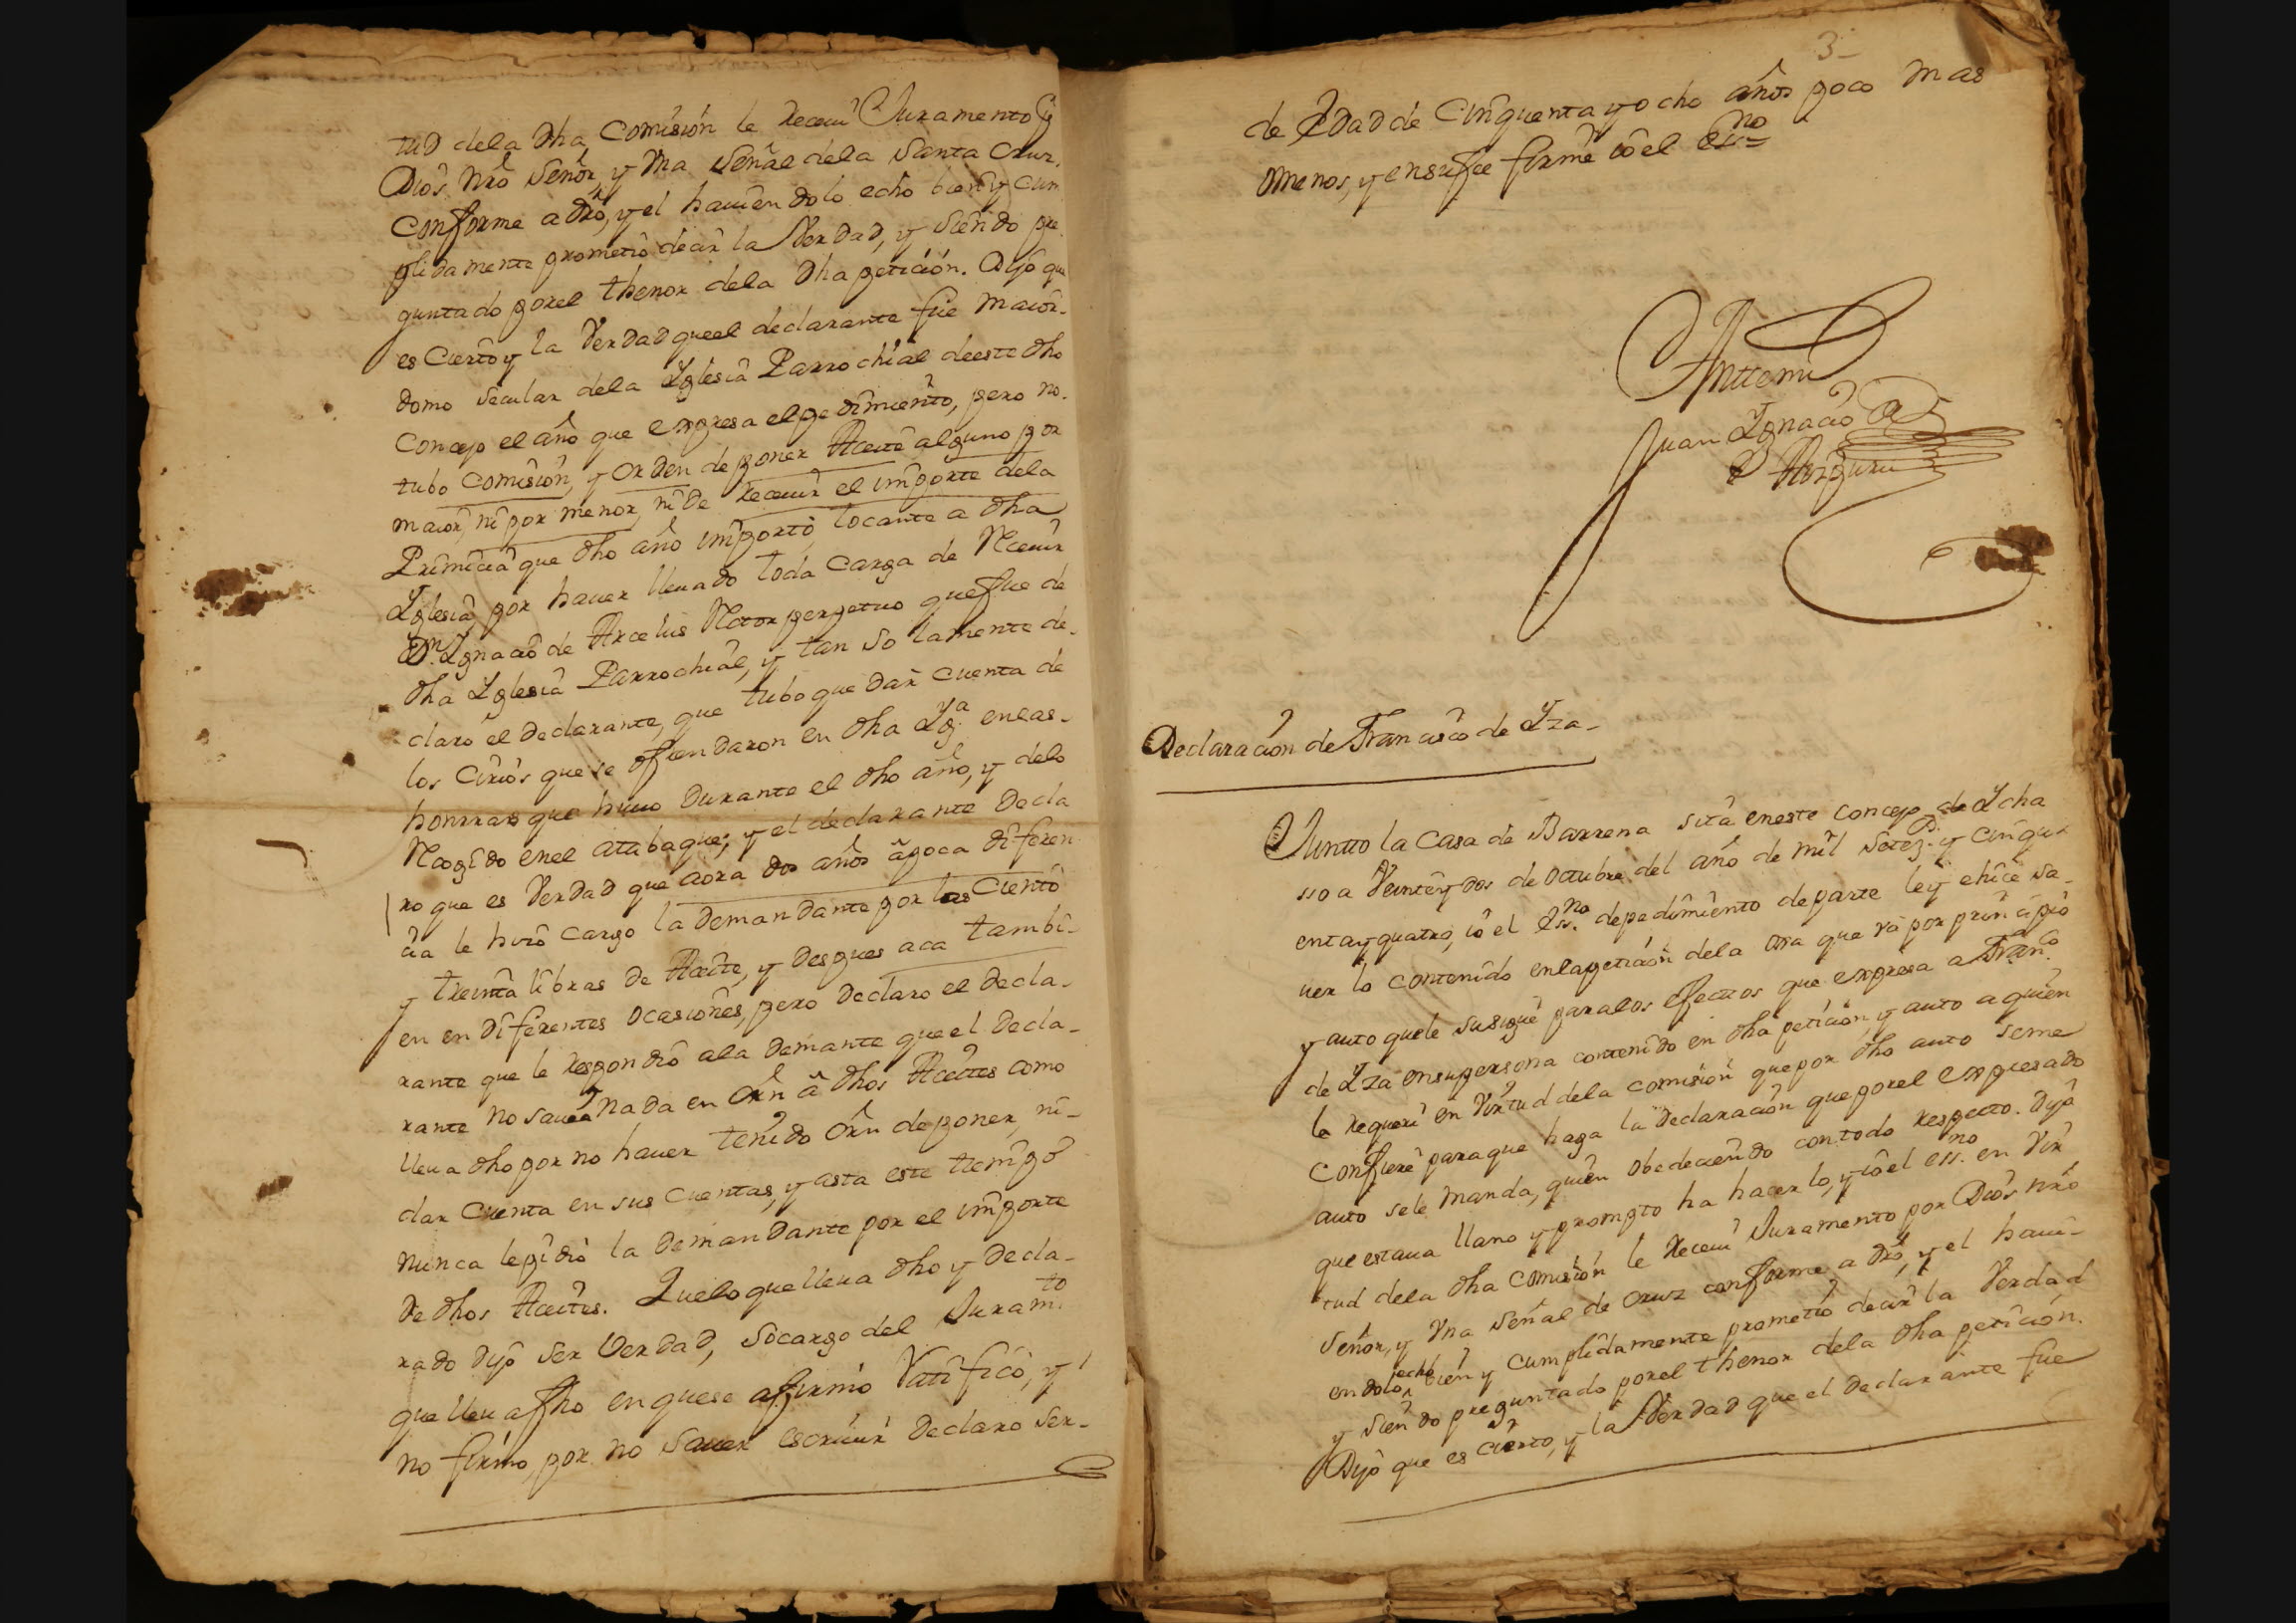 tud dela dha Comisión le receui Juramento p
Dios nrõ Señor, y Vna Señal dela Santa Cruz,
Conforme a drõ, y el hauiendolo echo bien y cun
plidamente prometio decir la Verdad, y siendo pre
guntado porel thenor dela dha petición. Dijo que
es Cierto y la Verdad queel declarante fue maior-
domo secular dela Yglesia Parrochial deeste dho
Concejo el año que expresa elpedimiento, pero no-
tubo Comisión, y orden deponer Aceite alguno por
maior, ni por menor, ni de receuir el importe dela
Primicia que dho año importó, tocante a dha
Yglesia, por hauer lleuado toda carga de Receuir
Dn. Ygnacio de Arcelus Rector perpetuo quefue de
dha Yglesia Parrochial, y tan solamente de-
claro el declarante, que tubo que dar cuenta de
los Cirios que se ofrendaron en dha Yga. enlas-
honrras que huuo durante el dho año, y delo
Recogido enel atabaque; y el declarante decla
ro que es Verdad que aora dos años apoca diferen
cia le hizo cargo la demandante por las Ciento
y treinta libras de Aceite, y despues aca tambi-
en en diferentes ocasiones, pero declaro el decla-
rante que le respondio ala demante que el decla-
rante no sauea nada en Orn â dhos Aceites como
lleua dho por no hauer tenido Orn deponer, ni-
dar cuenta en sus cuentas, y asta este tiempo
nunca lepidió la demandante por el importe
de dhos Aceites. Quelo quelleua dho y decla-
rado dijo ser Verdad, socargo del Juramto
que lleua fho en quese affirmó Ratificó, y
no firmo, por no sauer escriuir declaro ser-
3-
de Edad de Cinquenta y ocho años poco mas
omenos, y ensufee firmé io el Esno
Anttemi
Juan Ygnacio
Declaración de Francisco de Yza-
Juntto la Casa de Barrena sita eneste concejo de Ycha
sso a Veinte y dos de octubre del año de mil setezs. y cinqu
enta y quatro, io el Essno. depedimiento departe ley ehice sa-
uer lo contenido enlapetición dela otra que va por principio
y auto quele susigue paralos efecttos que expresa a Franco.
de Yza ensupersona contenido en dha petición, y auto a quien
le requeri en Virtud dela comisión quepor dho auto seme
Confiere paraque haga la declaración queporel expresado
auto sele manda, quien obedeciendo contodo respecto. Dijo
que estaua llano y prompto ha hacerlo, y io el essno. en Vir
tud dela dha Comisión le receui Juramento por Dios nrõ
Señor, y Vna Señal de Cruz conforme a drõ, y el haui-
endolo echo bien y cumplidamente prometio decir la Verdad
y siendo preguntado porel thenor dela dha petición.
Dijo que es cierto, y la Verdad que el declarante fue